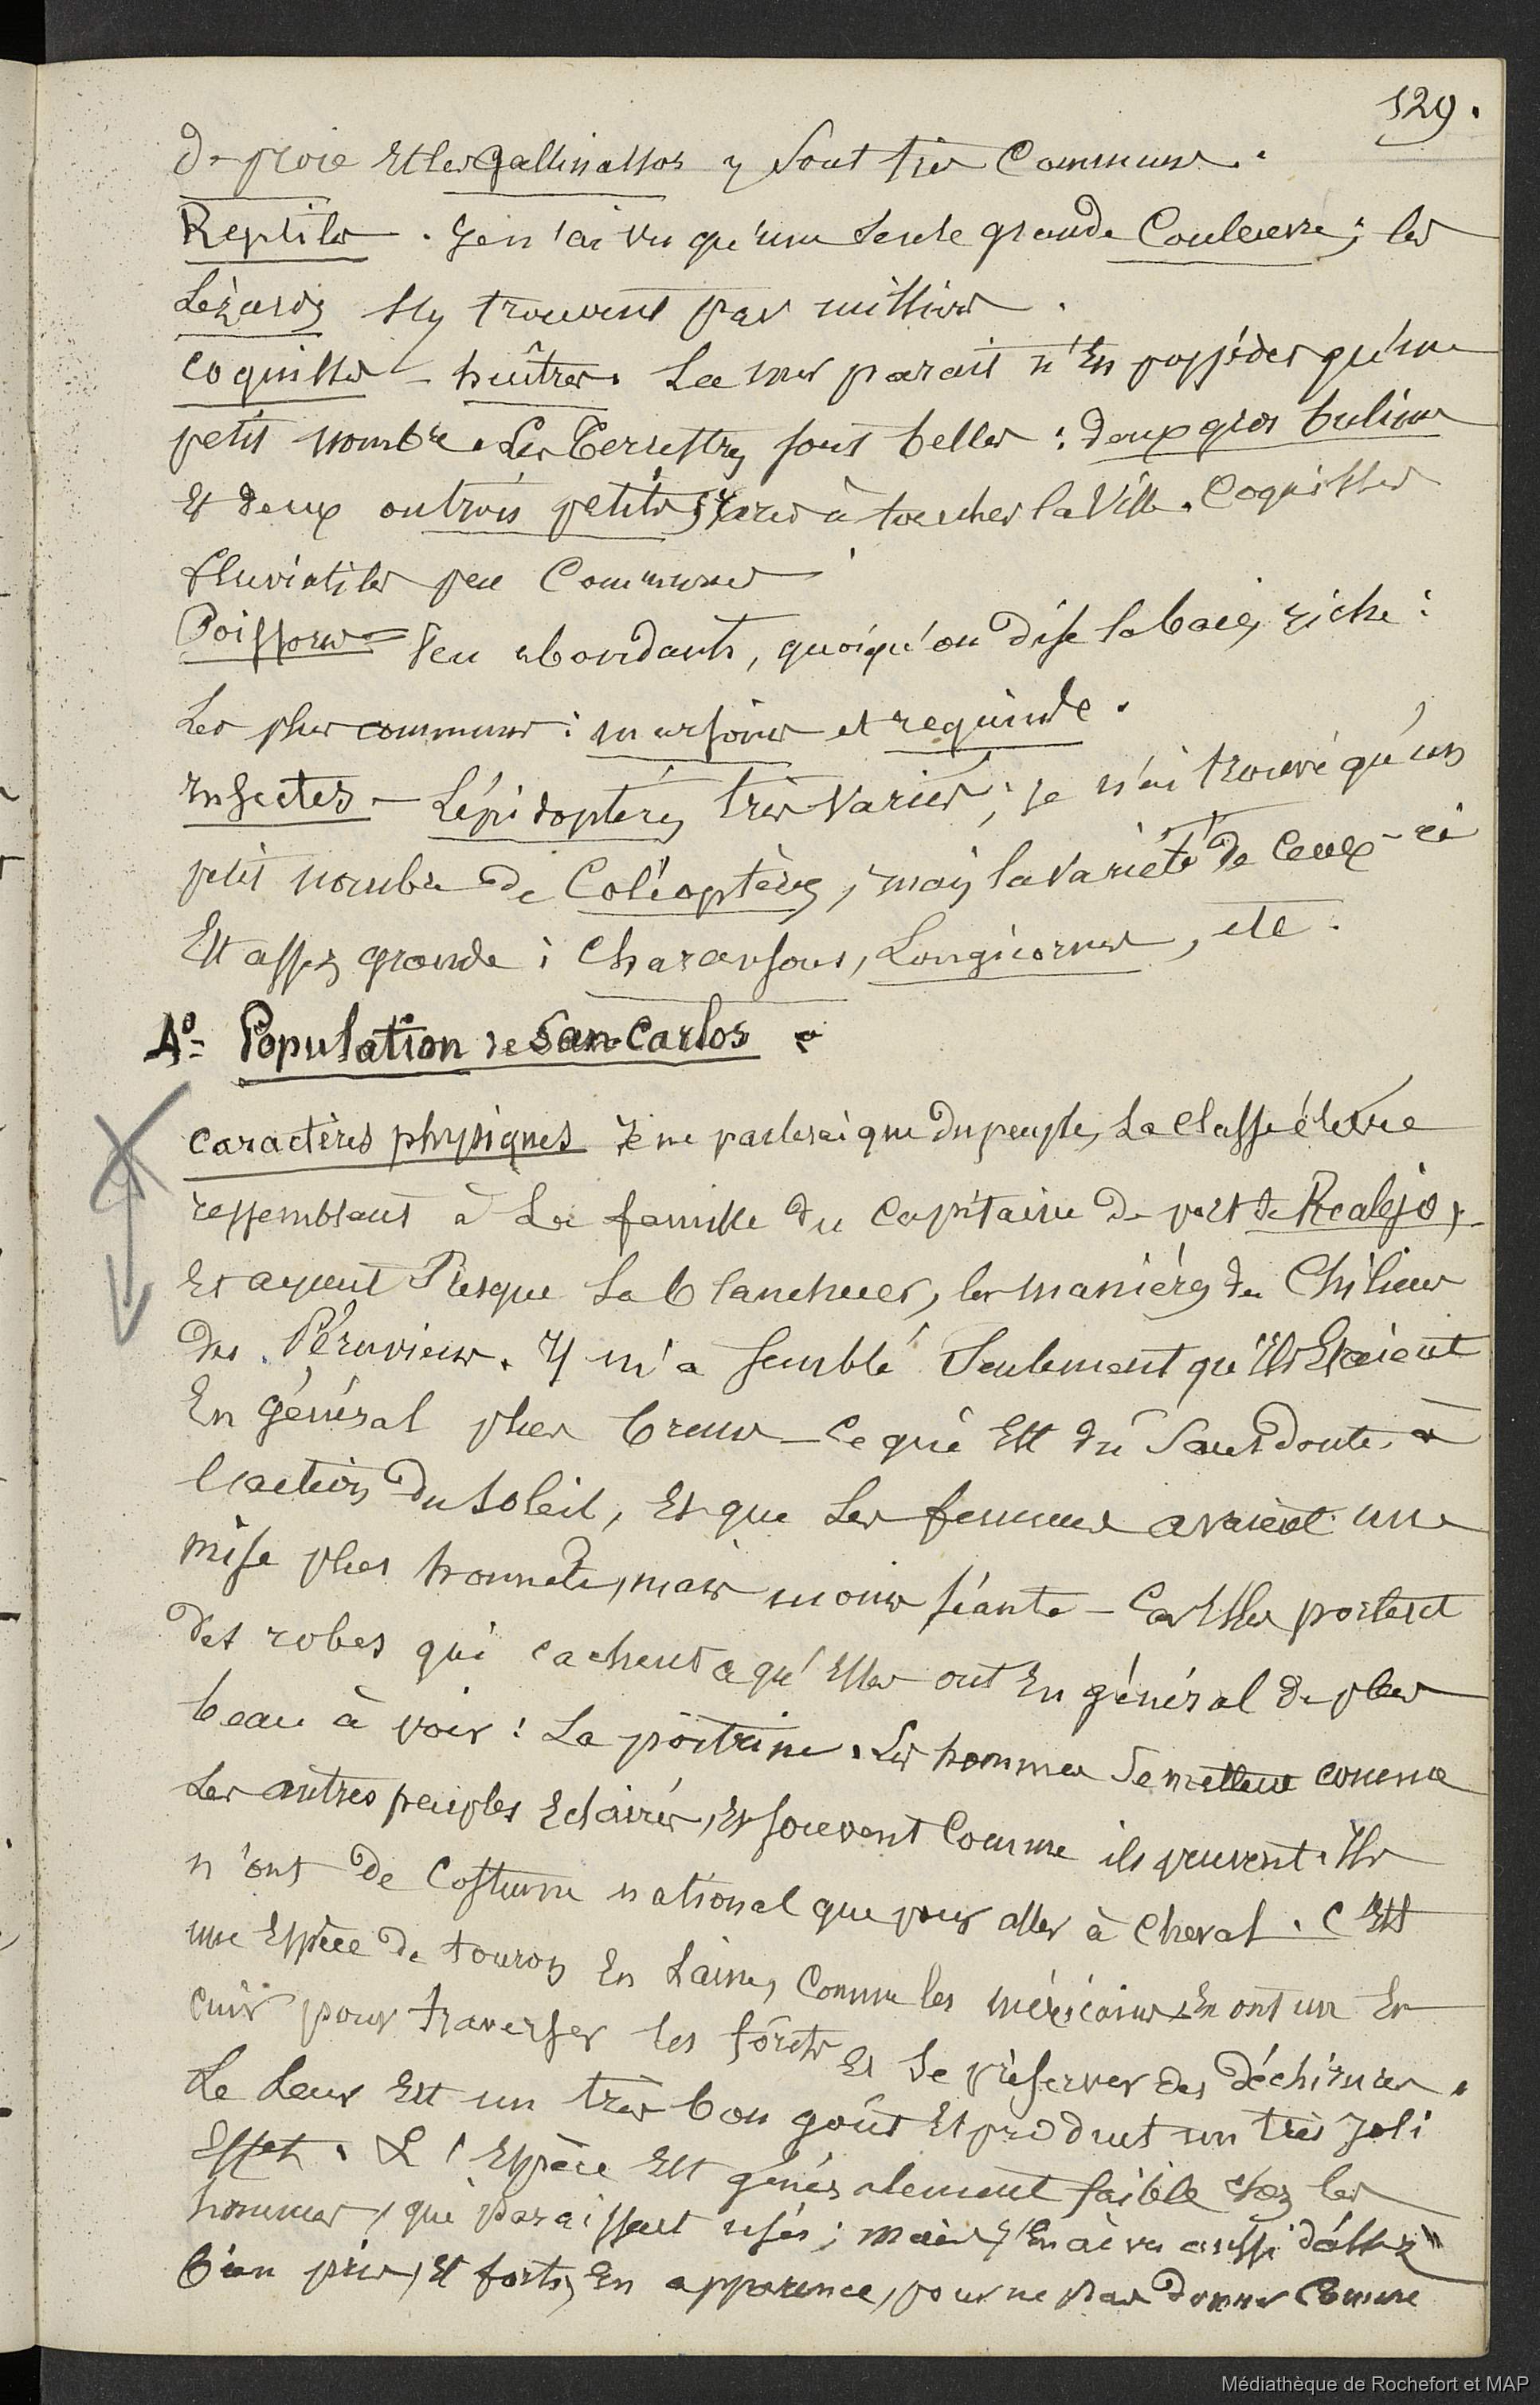 129.
de proie et les gallinassos y sont très communs.
Reptiles. Je n'ai vu qu'une seule grande Couleuvre; les
Lézards s'y trouvent par milliers.
Coquilles - huîtres. La mer parait n'en posséder qu'un
petit nombre. Les terrestres sont belles : deux gros bulimes
et deux ou trois petits, rares à toucher la ville. Coquilles
fluviatiles peu communes
Poissons = Peu abondants, quoiqu'on dise la baie riche :
Les plus communs : marsouins et requins.
Insectes - Lépidoptères très variés; je n'ai trouvé qu'un
petit nombre de Coléoptères, mais la variété de ceux-ci
est assez grande : Charansons, Longicornes, etc.
4º= Population de San-Carlos.
Caractères physiques Je ne parlerai que du peuple, la classe élevée
ressemblant à la famille du Capitaine de port de Realejo,
et ayant Presque la blancheur, les manières des Chiliens
des Péruviens. Il m'a semblé seulement qu'ils étaient
en général plus bruns - ce qui est dû sans doute à
l'action du soleil, et que les femmes avaient une
mise plus honnête, mais moins séante - Car elles portent
des robes qui cachent ce qu'elles ont en général de plus
beau à voir : La poitrine. Les hommes se mettent comme
les autres peuples éclairés, et souvent comme ils peuvent. Ils
n'ont de costume national que pour aller à cheval. C'est
une espèce de en laine, comme les méxicains en ont un en
cuir pour traverser les forêts et se préserver des déchirures.
Le leur est un très bon goût et produit un très joli
effet. L'espèce est généralement faible chez les
hommes, qui paraissent usés; mais j'en ai vu aussi d'assez
bien pris, et forts, en apparence, pour ne pas donner comme
Médiathèque de Rochefort et MAP